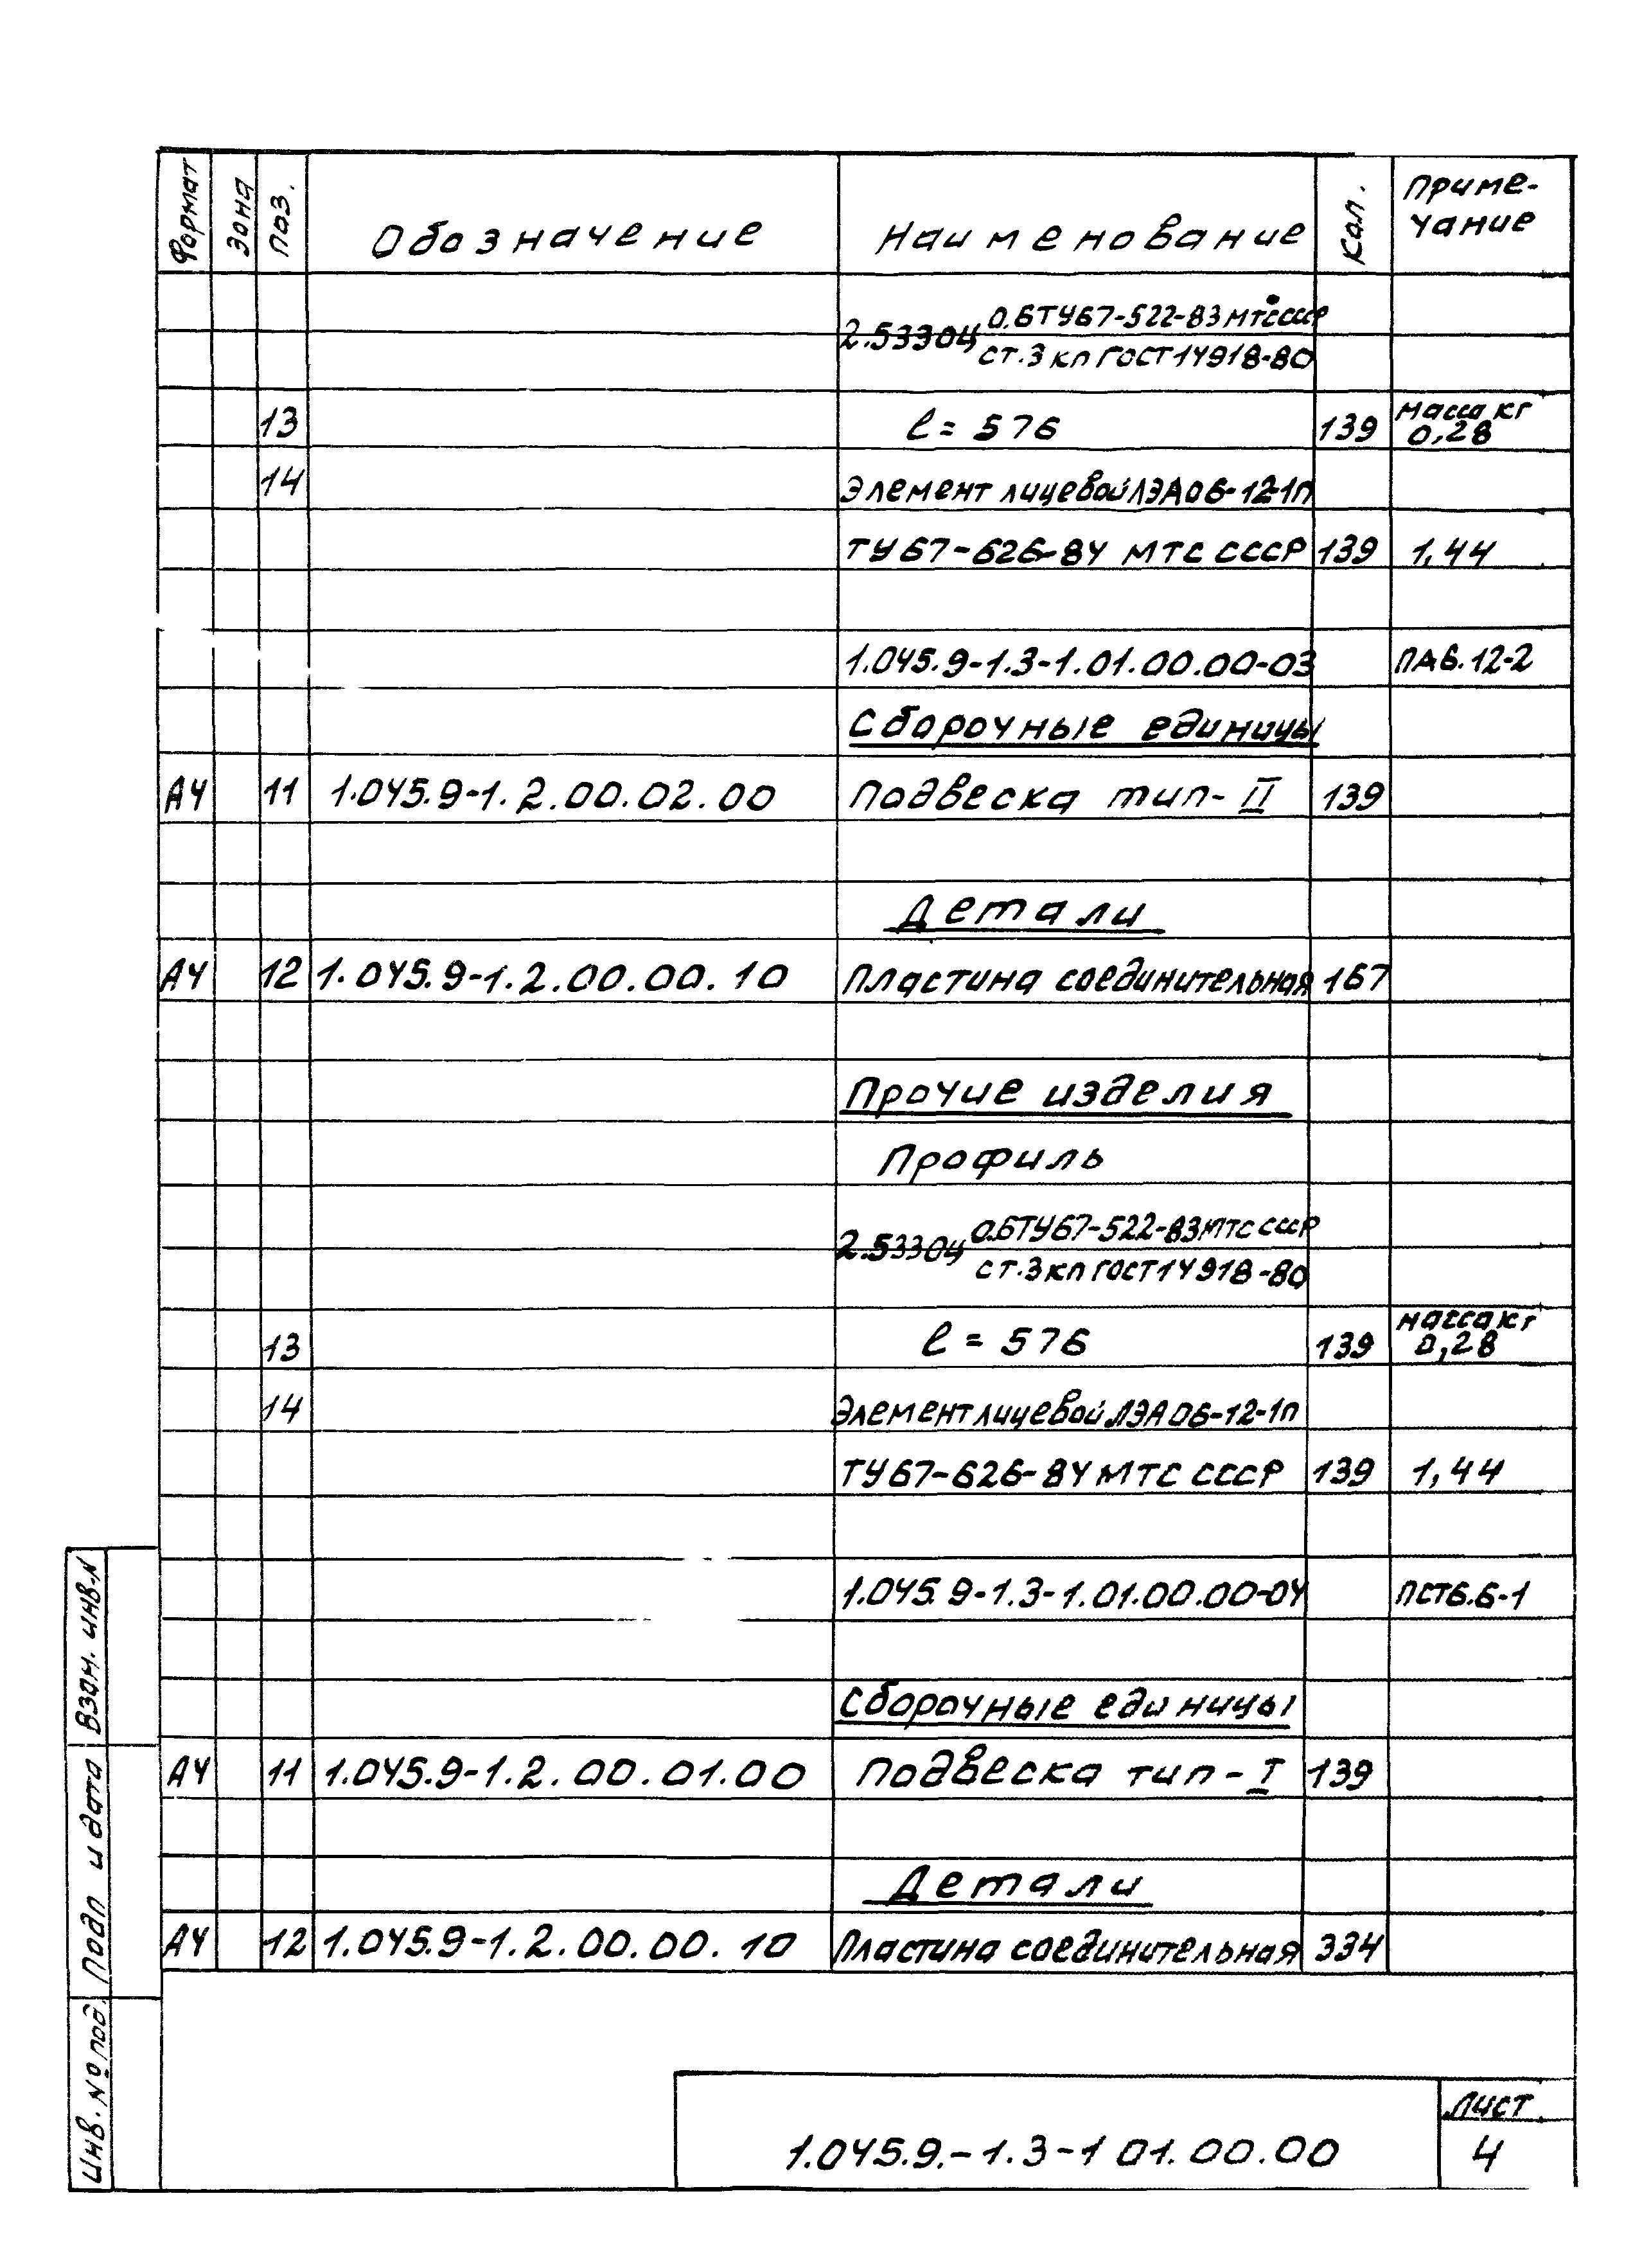 Формат Зона Поз. Обозначение Наименование Кол. Приме-
чание
2.53304 0.6ТУ67-522-83 МТС СССР
ст.3кп ГОСТ 14918-80
13 l = 576 139 масса кг 0,28
14 Элемент лицевой ЛЭА06-12-1п
ТУ67-626-84 МТС СССР 139 1,44
1.045.9-1.3-1.01.00.00-03 ПА6.12-2
Сборочные единицы
А4 11 1.045.9-1.2.00.02.00 Подвеска тип-II 139
Детали
А4 12 1.045.9-1.2.00.00.10 Пластина соединительная 167
Прочие изделия
Профиль
2.53304 0.6ТУ67-522-83 МТС СССР
ст.3кп ГОСТ 14918-80
13 l = 576 139 масса кг 0,28
14 Элемент лицевой ЛЭА06-12-1п
ТУ67-626-84 МТС СССР 139 1,44
1.045.9-1.3-1.01.00.00-04 ПСТ6.6-1
Сборочные единицы
А4 11 1.045.9-1.2.00.01.00 Подвеска тип-I 139
Детали
А4 12 1.045.9-1.2.00.00.10 Пластина соединительная 334
Взам. инв.N
Подп и дата
Инв. № под.
1.045.9.-1.3-1 01.00.00
Лист
4